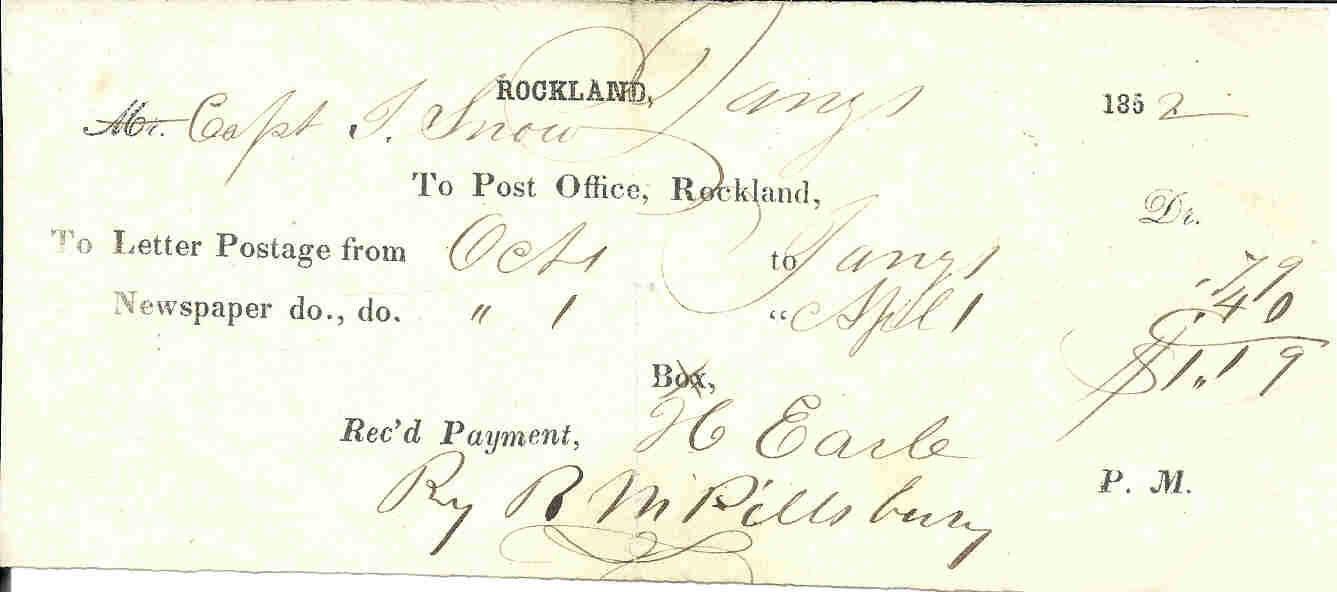 ROCKLAND, Jany 1 1852
Mr. Capt I. Snow
To Post Office, Rockland,
Dr.
To Letter Postage from Oct 1 to Jany 1 .79
Newspaper do., do. " 1 " Apll 1 .40
$1.19
Box,
Rec'd Payment, H Earle
P. M.
By R M Pillsbury